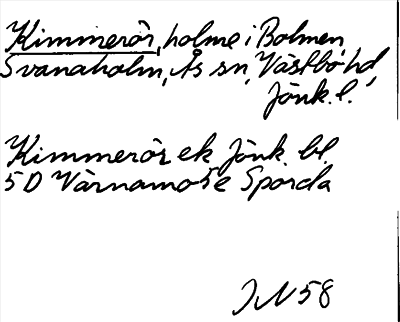 Kimmerör, holme i Bolmen,
Svanaholm, Ås sn, Västbo hd,
Jönk. l.
Kimmerör ek Jönk. bl.
5D Värnamo 5e Sporda
JN 58